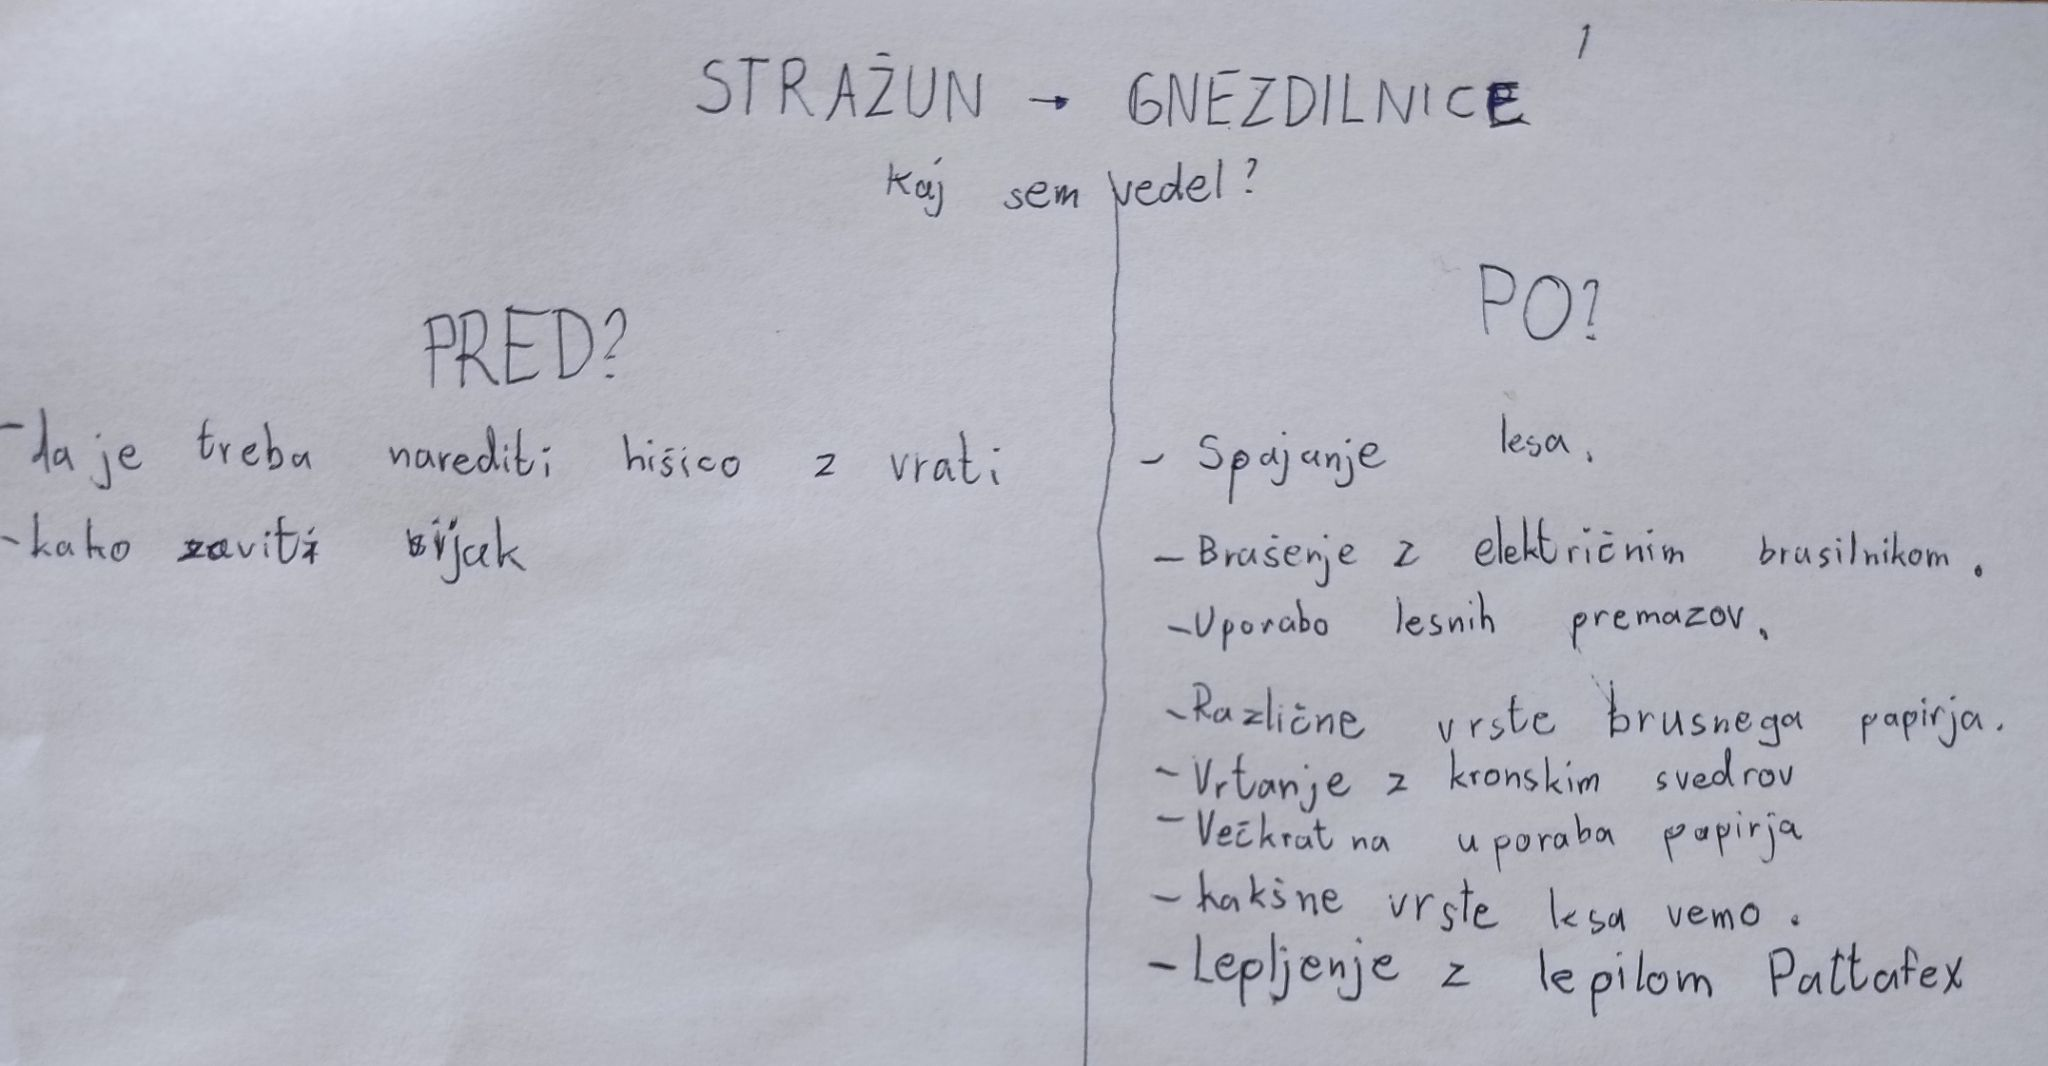 1
STRAŽUN → GNEZDILNICE
Kaj sem vedel?
PRED?
- da je treba narediti hišico z vrati
- kako zaviti vijak
PO?
- Spajanje lesa.
- Brušenje z električnim brusilnikom.
- Uporabo lesnih premazov.
- Različne vrste brusnega papirja.
- Vrtanje z kronskim svedrov
- Večkratna uporaba papirja
- kakšne vrste lesa vemo.
- Lepljenje z lepilom Pattafex